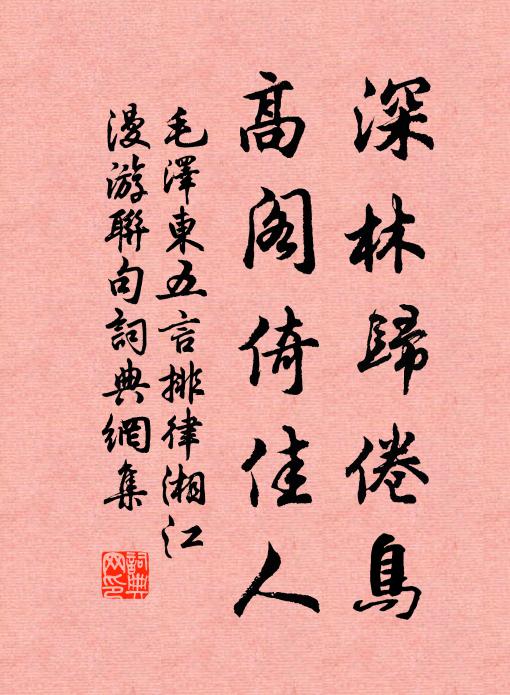 深林歸倦鳥
高阁倚佳人
毛澤東五言排律湘江
漫游聯句詞典網集
詞典网印